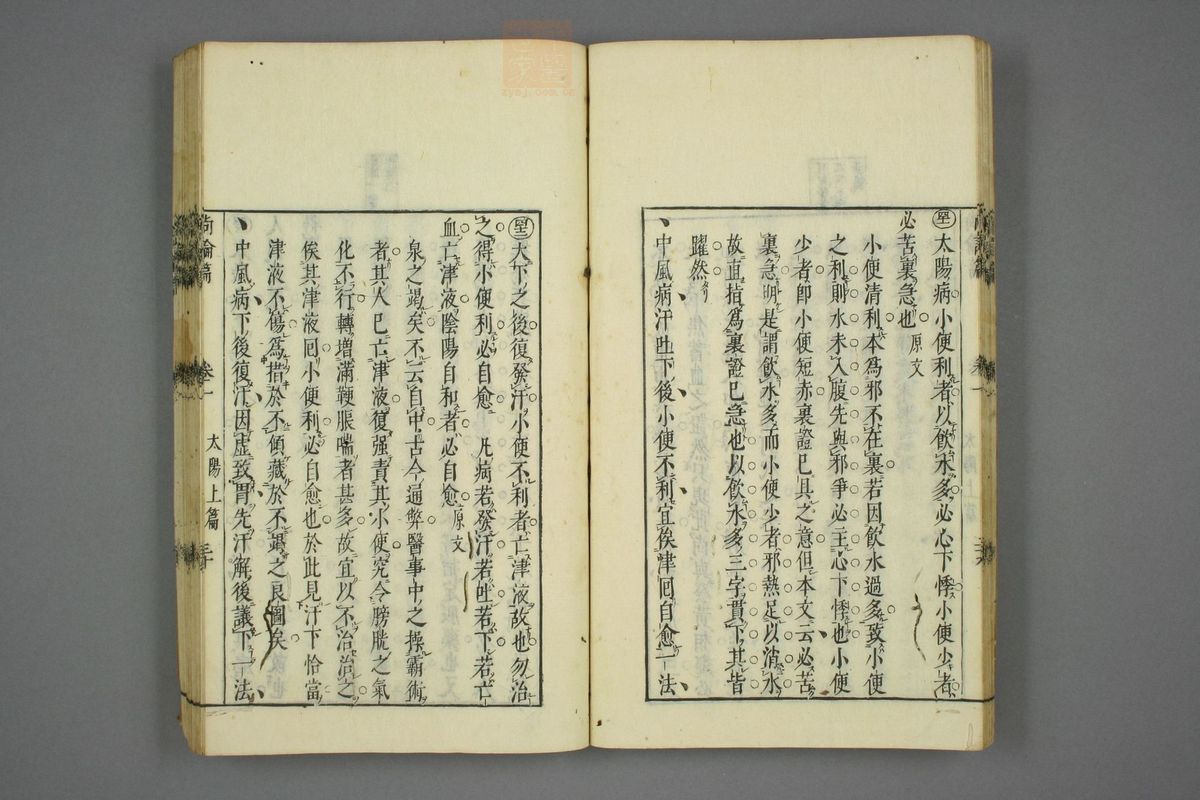 太陽病小便利者以飲水多必心下悸小便少者
必苦裏急也原文
小便清利本爲邪不在裏若因飲水過多致小便
之利則水未入腹先與邪爭必主心下悸也小便
少者即小便短赤裏證已具之意但本文云必苦
裏急明是謂飲水多而小便少者邪熱足以消水
故直指爲裏證已急也以飲水多三字貫下其旨
躍然
中風病汗吐下後小便不利宜俟津回自愈一法
大下之後復發汗小便不利者亡津液故也勿治
之得小便利必自愈 凡病若發汗若吐若下若亡
血亡津液陰陽自和者必自愈原文
泉之竭矣不云自中古今通弊醫事中之操霸術
者其人已亡津液復强責其小便究令膀胱之氣
化不行轉增滿鞕脹喘者甚多故宜以不治治之
俟其津液回小便利必自愈也於此見汗下恰當
津液不傷爲措於不傾藏於不竭之良圖矣
中風病下後復汗因虛致冒先汗解後議下一法
尚論篇 卷一 太陽上篇
zysj.com.cn